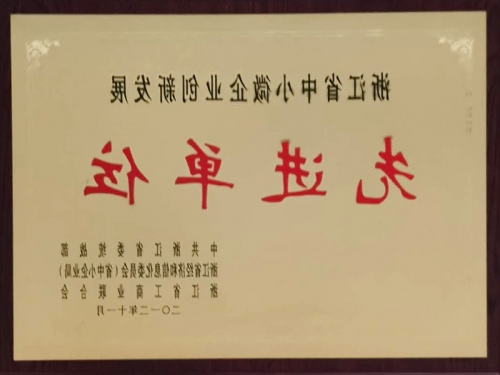 浙江省中小微企业创新发展
先进单位
中共浙江省委统战部
浙江省经济和信息化委员会(省中小企业局)
浙江省工商业联合会
二〇一二年十一月